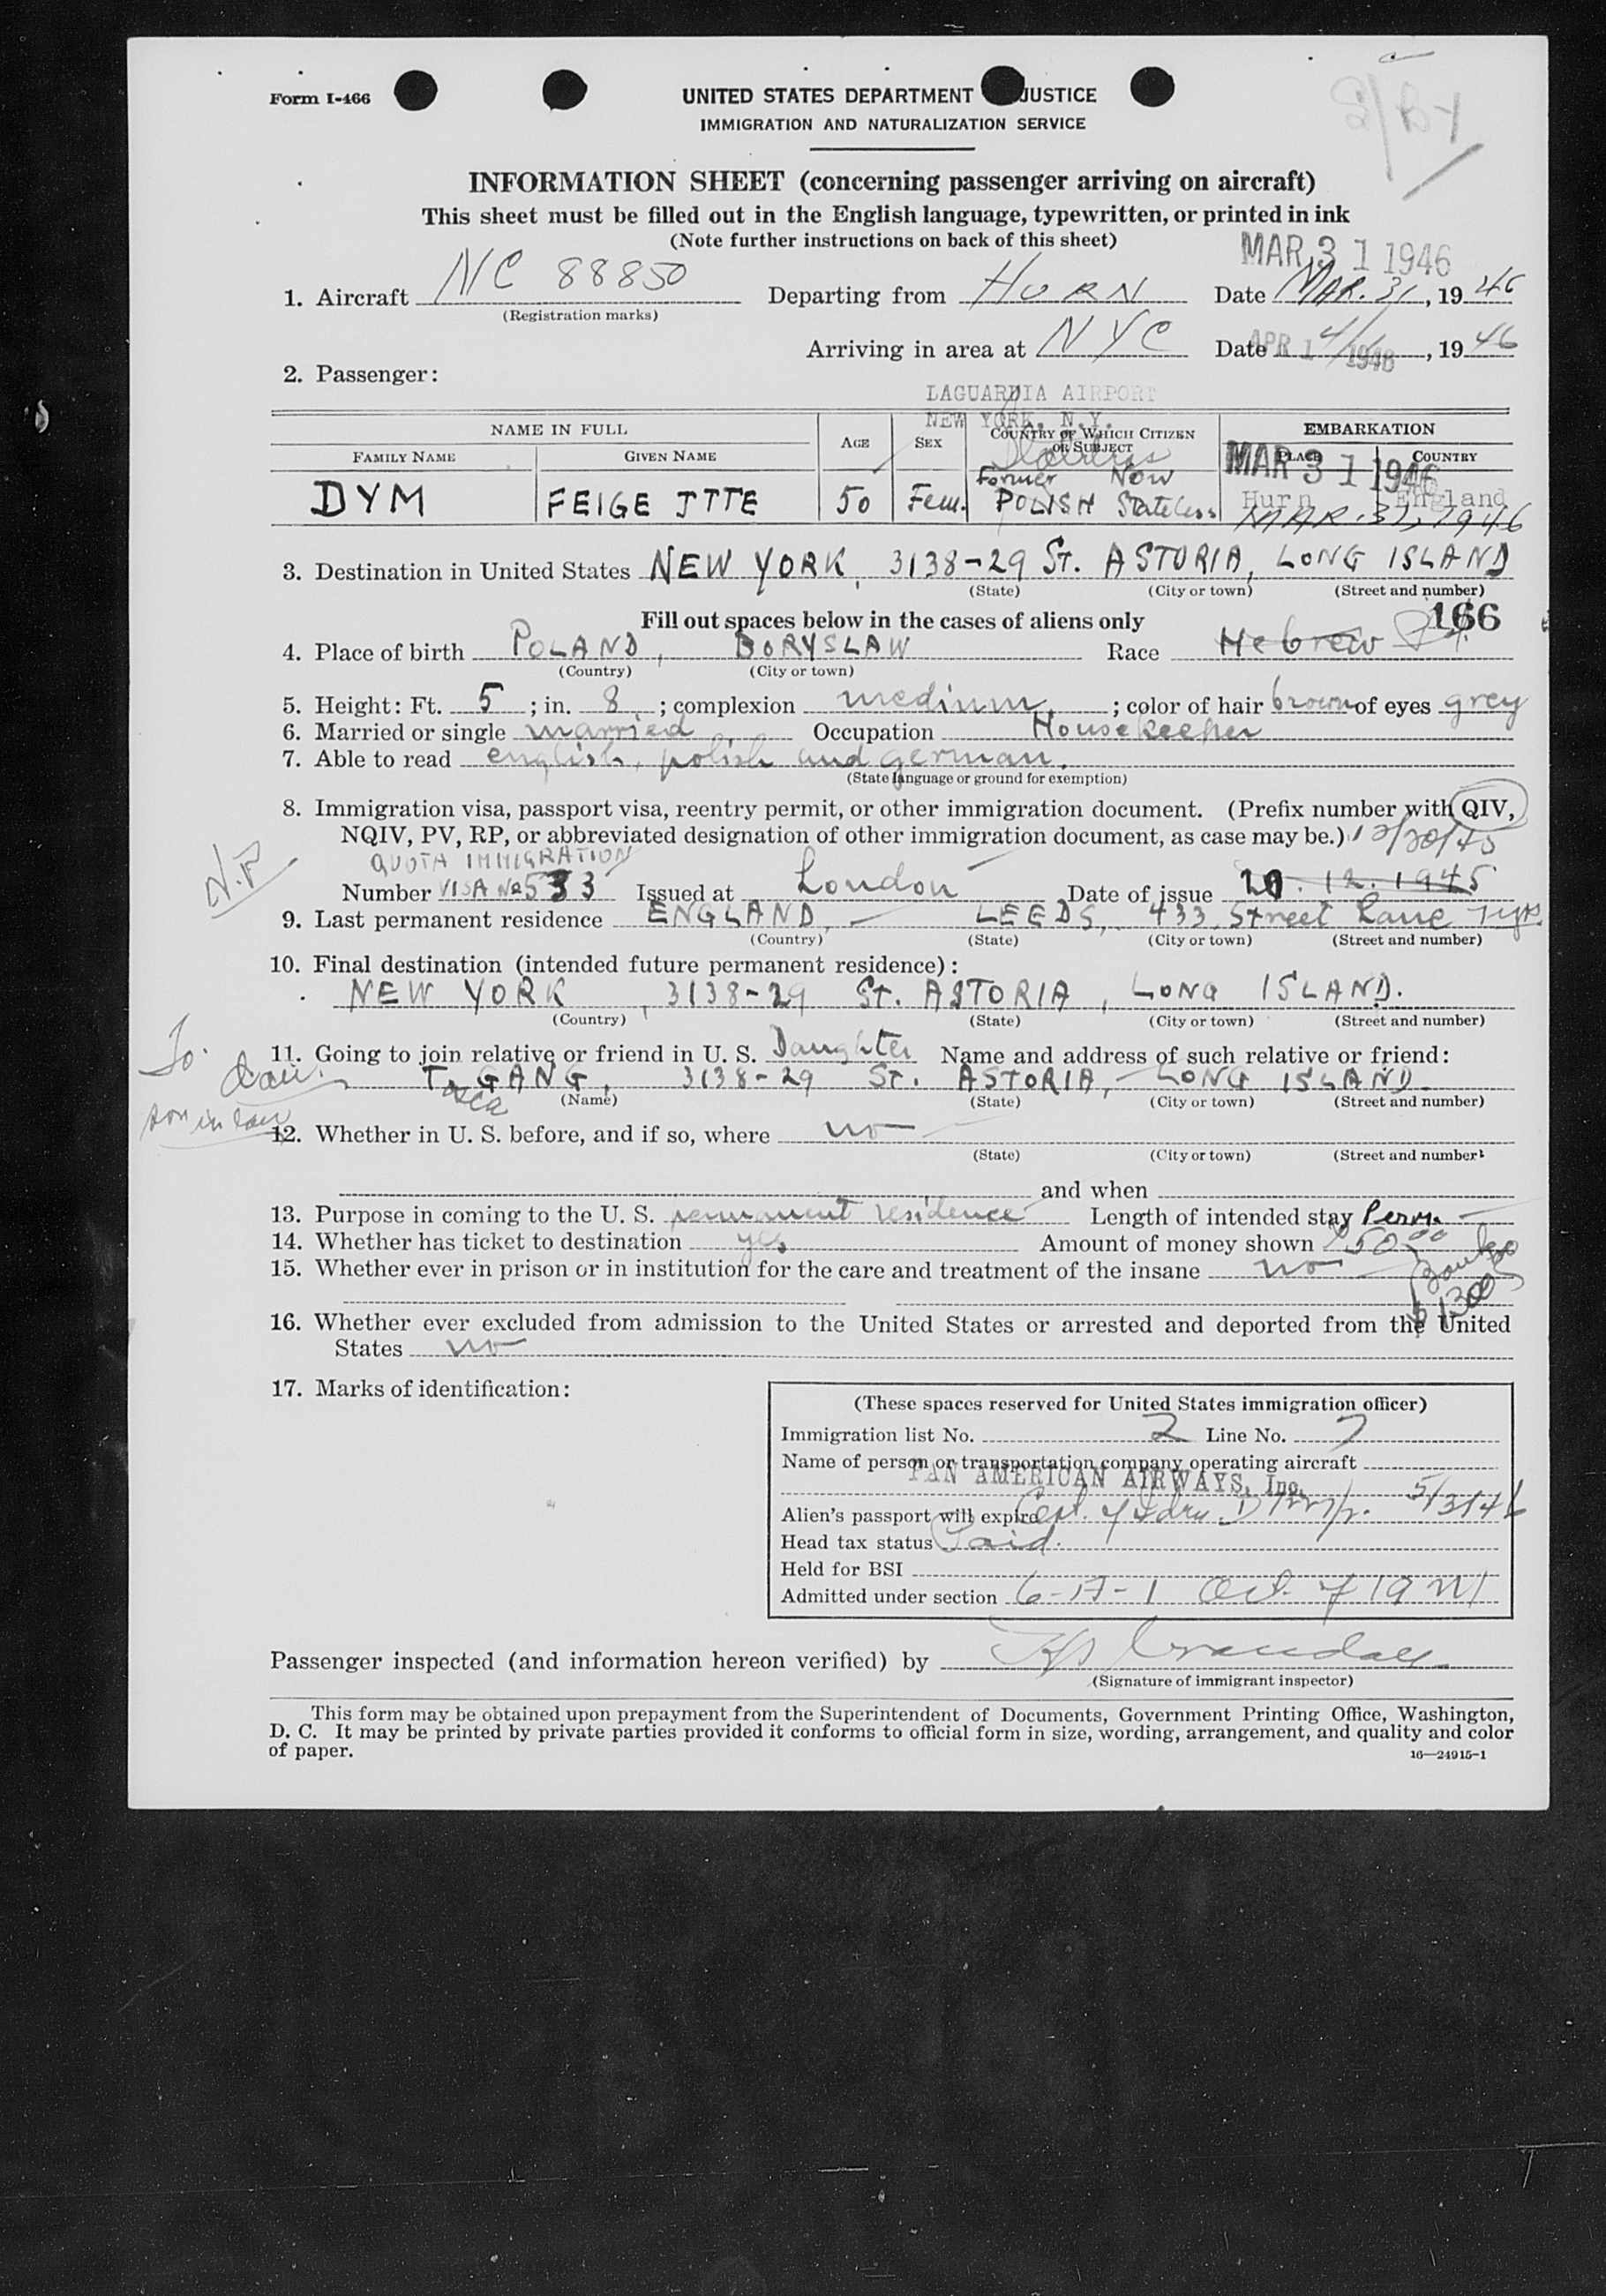 Form I-466
UNITED STATES DEPARTMENT JUSTICE
IMMIGRATION AND NATURALIZATION SERVICE
INFORMATION SHEET (concerning passenger arriving on aircraft)
This sheet must be filled out in the English language, typewritten, or printed in ink
(Note further instructions on back of this sheet)
MAR 31 1946
1. Aircraft NC 88850 Departing from HURN Date MAR. 31, 1946
(Registration marks)
Arriving in area at NYC Date APR 1 1946 4/1, 1946
2. Passenger:
LAGUARDIA AIRPORT
NEW YORK, N.Y.
NAME IN FULL AGE SEX COUNTRY OF WHICH CITIZEN OR SUBJECT EMBARKATION
FAMILY NAME GIVEN NAME PLACE COUNTRY
MAR 31 1946
Former Now
DYM FEIGE ITTE 50 Fem. POLISH Stateless Hurn England
MAR. 31, 1946
3. Destination in United States NEW YORK, 3138-29 ST. ASTORIA, LONG ISLAND
(State) (City or town) (Street and number)
Fill out spaces below in the cases of aliens only
166
4. Place of birth POLAND, BORYSLAW Race Hebrew
(Country) (City or town)
5. Height: Ft. 5; in. 8; complexion medium; color of hair brown of eyes grey
6. Married or single married Occupation Housekeeper
7. Able to read english, polish and german.
(State language or ground for exemption)
8. Immigration visa, passport visa, reentry permit, or other immigration document. (Prefix number with QIV,
NQIV, PV, RP, or abbreviated designation of other immigration document, as case may be.) 12/20/45
N.P.
QUOTA IMMIGRATION
Number VISA No 533 Issued at London Date of issue 20.12.1945
9. Last permanent residence ENGLAND, - LEEDS, 433, Street Lane 7 yrs
(Country) (State) (City or town) (Street and number)
10. Final destination (intended future permanent residence):
NEW YORK, 3138-29 ST. ASTORIA, LONG ISLAND.
(Country) (State) (City or town) (Street and number)
To.
11. Going to join relative or friend in U. S. Daughter Name and address of such relative or friend:
T. GANG, 3138-29 ST. ASTORIA, - LONG ISLAND.
(Name) (State) (City or town) (Street and number)
son in law
12. Whether in U. S. before, and if so, where no
(State) (City or town) (Street and number)
and when
13. Purpose in coming to the U. S. permanent residence Length of intended stay Perm.
14. Whether has ticket to destination yes Amount of money shown $50.00
15. Whether ever in prison or in institution for the care and treatment of the insane no
$1300
16. Whether ever excluded from admission to the United States or arrested and deported from the United
States no
17. Marks of identification:
(These spaces reserved for United States immigration officer)
Immigration list No. 2 Line No. 7
Name of person or transportation company operating aircraft
PAN AMERICAN AIRWAYS, Inc.
Alien's passport will expire 5/3/46
Head tax status Paid.
Held for BSI
Admitted under section 6-A-1 Act of 1924
Passenger inspected (and information hereon verified) by
(Signature of immigrant inspector)
This form may be obtained upon prepayment from the Superintendent of Documents, Government Printing Office, Washington,
D. C. It may be printed by private parties provided it conforms to official form in size, wording, arrangement, and quality and color
of paper.
16—24915-1